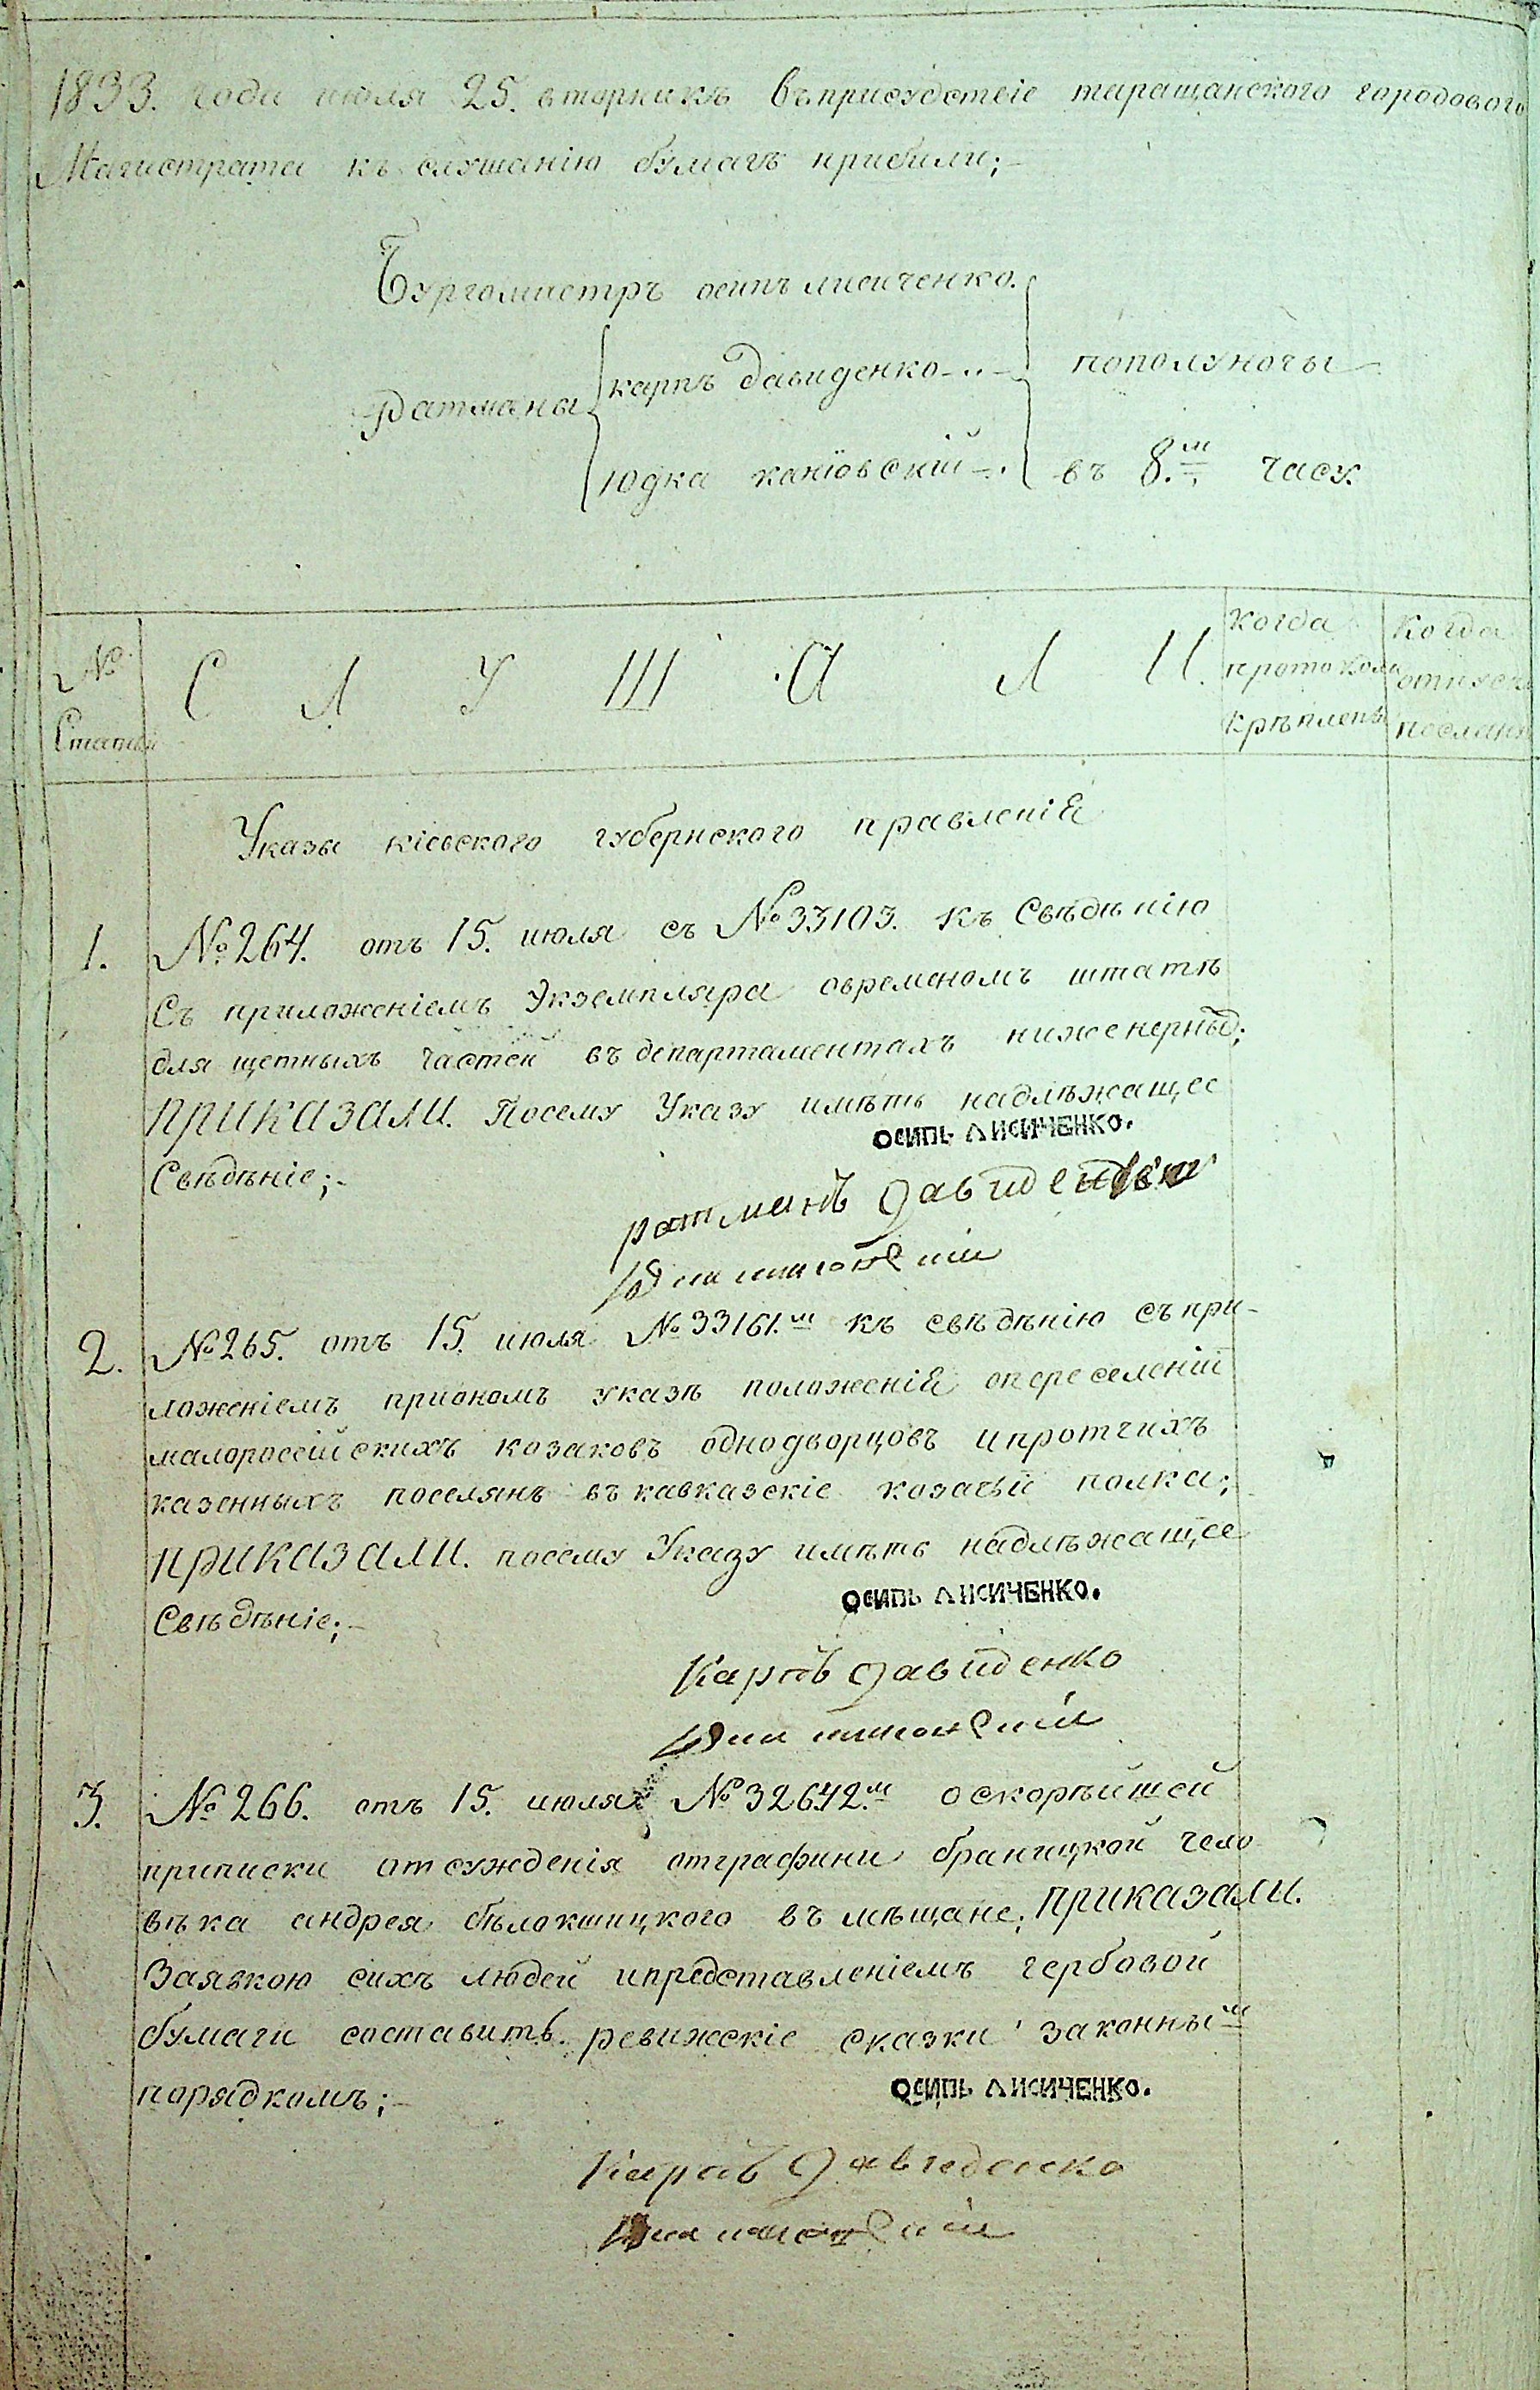 1833. года июля 25. вторникъ въприсудствіе таращанского городового
Магистрата къ слушанію бумагъ прибили;-
Бургомистръ осипъ лисиченко.
Ратманы
карпъ давиденко-..-
юдка каніовскій-.
пополуночы
въ 8.м часу.
№
Статьи
С Л У Ш А Л И.
когда
протоколъ
крѣпленъ
Когда
отпускъ
посланъ
Указы кіевского губернского правленія
1. №264. отъ 15. июля съ №33103. къ Свѣдѣнію
Съ приложеніемъ Экземпляра овременомъ штатѣ
для щетныхъ частей въ департаментахъ
приказали. Посему Указу имѣть надлѣжащее
Свѣдѣніе;-
осипъ лисиченко.
ратманъ давиденко
2. №265. отъ 15. июля №33161.м къ свѣдѣнію съ при-
ложеніемъ приономъ указѣ положенія опереселеніи
малоросійскихъ козаковъ однодворцовъ ипротчихъ
казенныхъ поселянъ въ кавказскіе козачьи полка;
приказали. посему Указу имѣть надлѣжащее
Свѣдѣніе;-
осипъ лисиченко.
Карпъ давиденко
3. №266. отъ 15. июля №32642.м оскорѣйшей
приписки отсужденія отграфини браницкой чело
вѣка андрея въ мѣщане; приказали.
Заявкою сихъ людей ипредставленіемъ гербовой
бумаги составить ревижскіе сказки законным
порядкомъ;-
осипъ лисиченко.
Карпъ давиденко